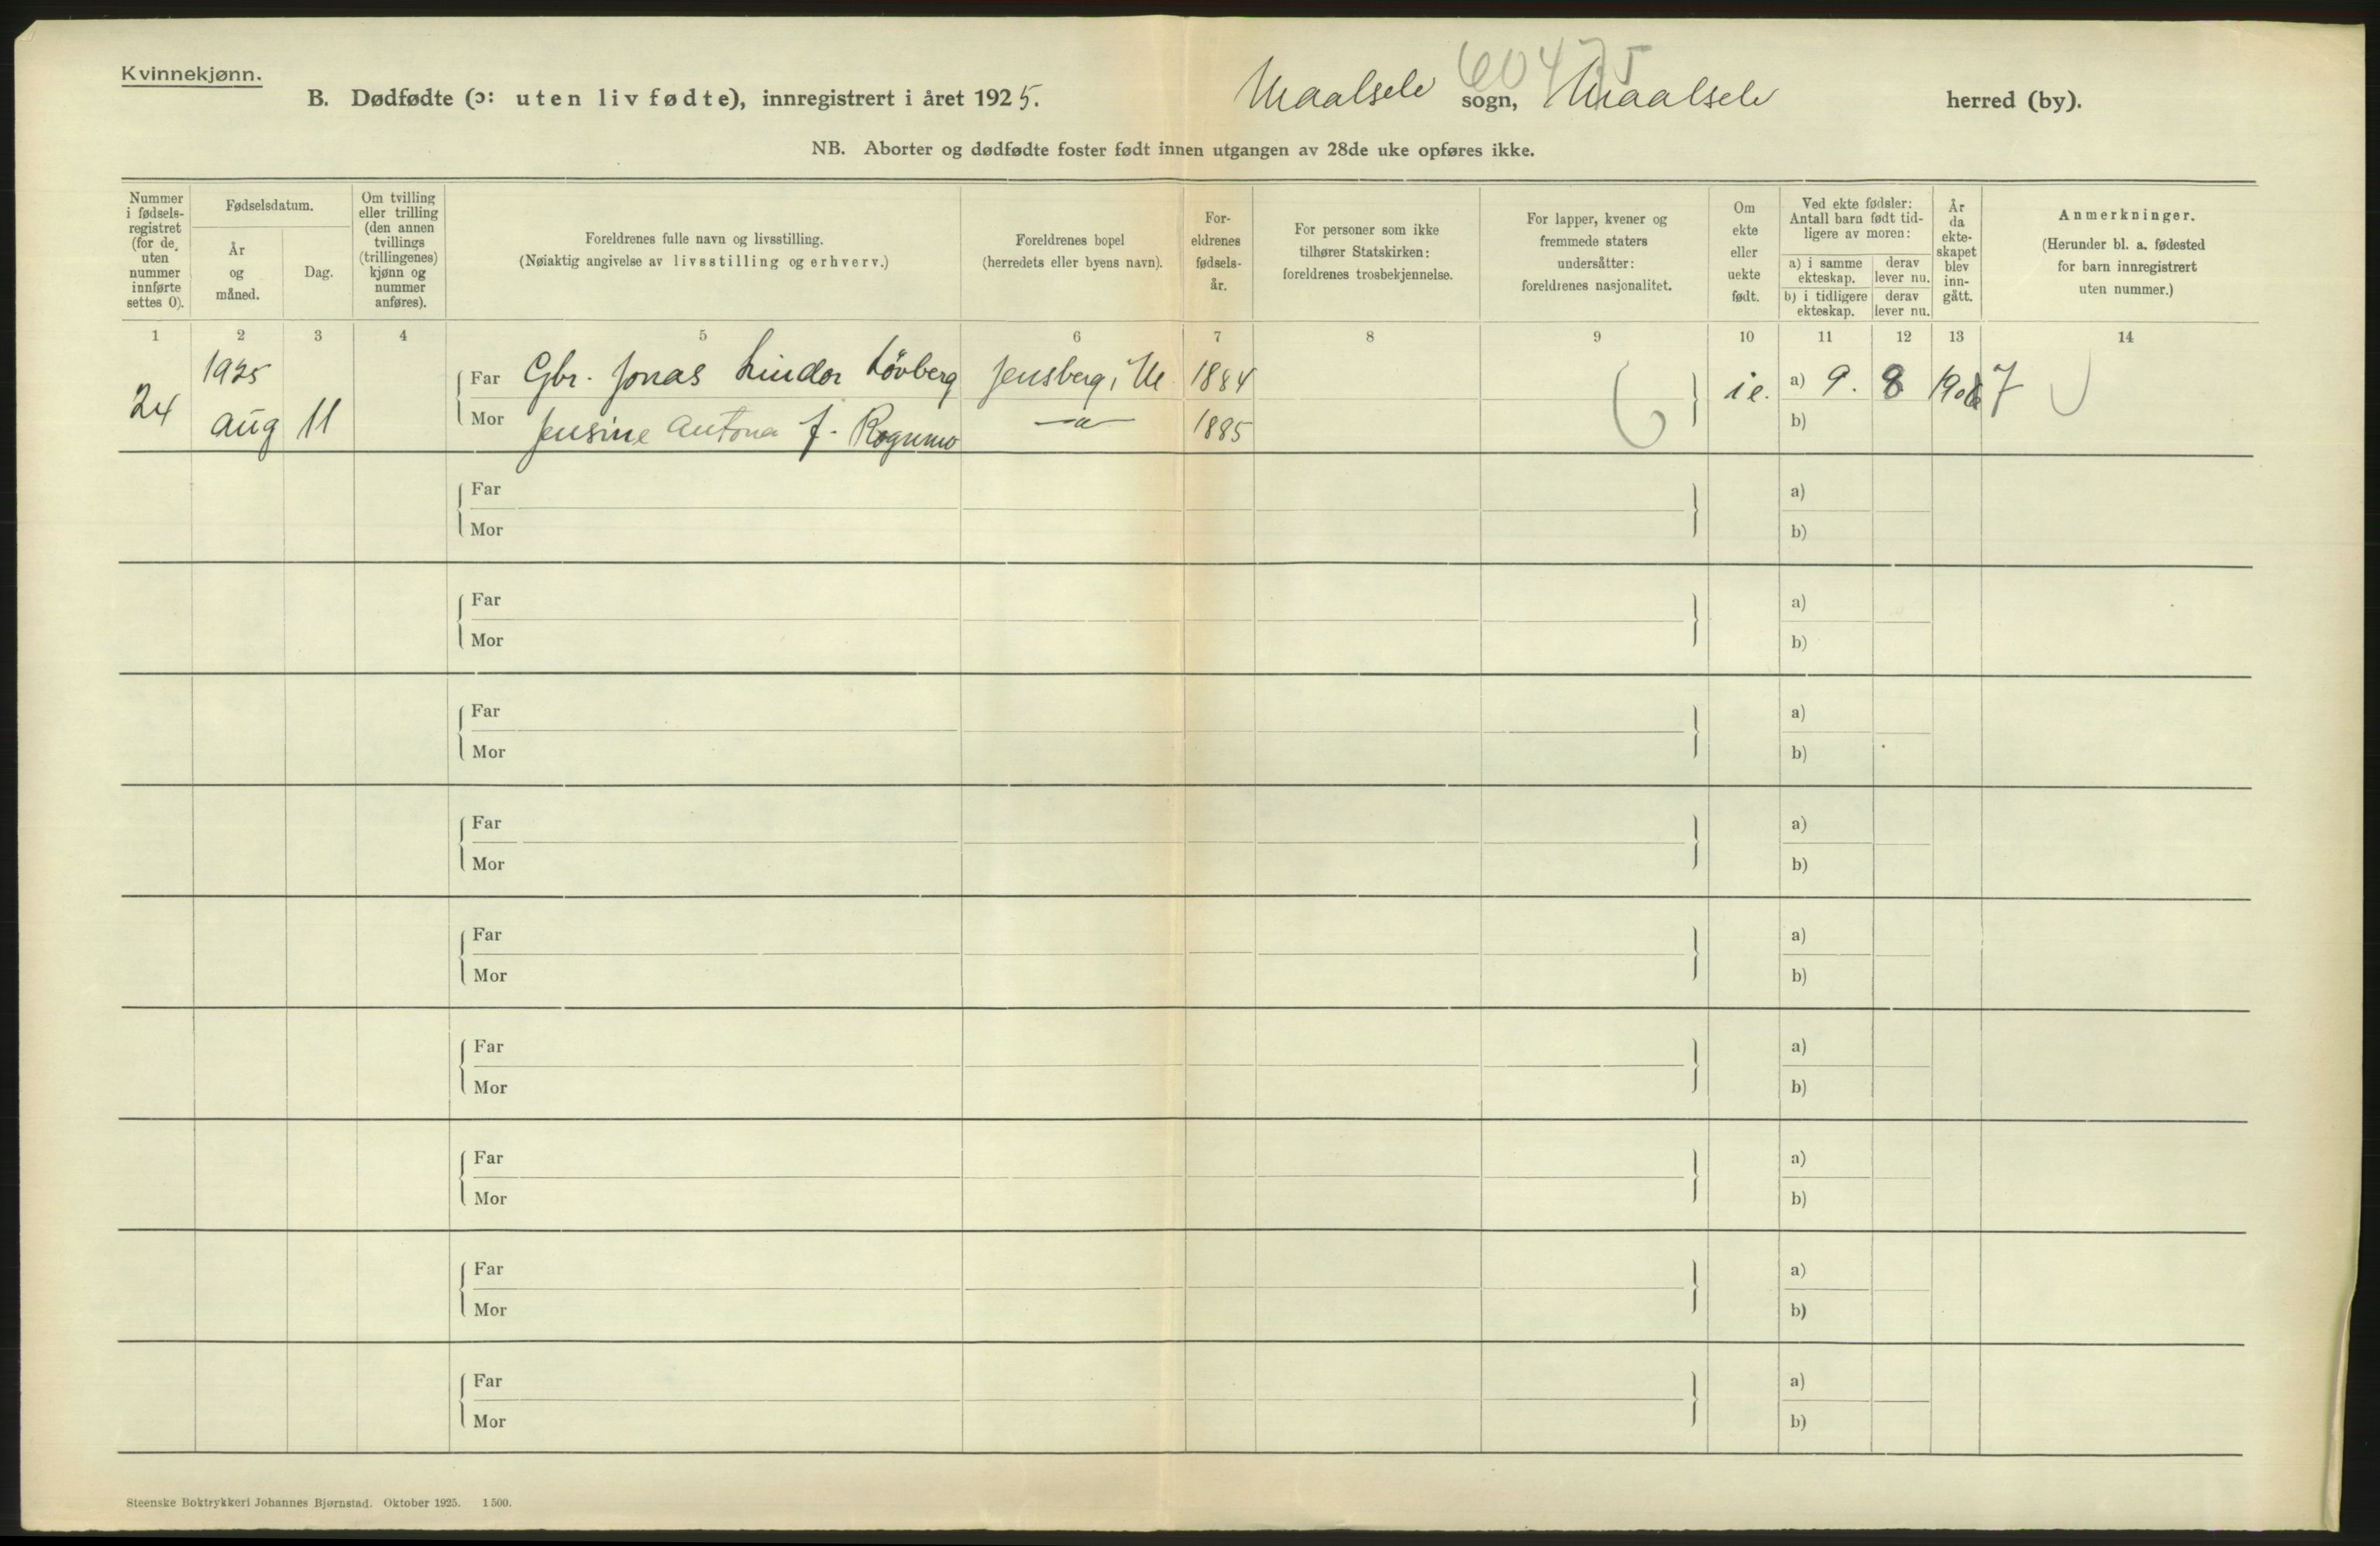 Kvinnekjønn.
60475
B. Dødfødte (ɔ: uten liv fødte), innregistrert i året 1925. Maalselv sogn, Maalselv herred (by).
NB. Aborter og dødfødte foster født innen utgangen av 28de uke opføres ikke.
Nummer i fødsels-registret (for de uten nummer innførte settes 0).
Fødselsdatum.
År og måned.
Dag.
Om tvilling eller trilling (den annen tvillings (trillingenes) kjønn og nummer anføres).
Foreldrenes fulle navn og livsstilling.
(Nøiaktig angivelse av livsstilling og erhverv.)
Foreldrenes bopel
(herredets eller byens navn).
For-eldrenes fødsels-år.
For personer som ikke tilhører Statskirken: foreldrenes trosbekjennelse.
For lapper, kvener og fremmede staters undersåtter: foreldrenes nasjonalitet.
Om ekte eller uekte født.
Ved ekte fødsler: Antall barn født tid-ligere av moren:
a) i samme ekteskap.
derav lever nu.
b) i tidligere ekteskap.
derav lever nu.
År da ekte-skapet blev inn-gått.
Anmerkninger.
(Herunder bl. a. fødested for barn innregistrert uten nummer.)
1 2 3 4 5 6 7 8 9 10 11 12 13 14
24 1925 aug 11
Far Gbr. Jonas Lindor Lövberg Jensberg, M. 1884 i e. a) 9. 8 1907
Mor Jensine Antona f. Rognmo —"— 1885 b)
Far a)
Mor b)
Far a)
Mor b)
Far a)
Mor b)
Far a)
Mor b)
Far a)
Mor b)
Far a)
Mor b)
Far a)
Mor b)
Far a)
Mor b)
Far a)
Mor b)
Steenske Boktrykkeri Johannes Bjørnstad. Oktober 1925. 1500.